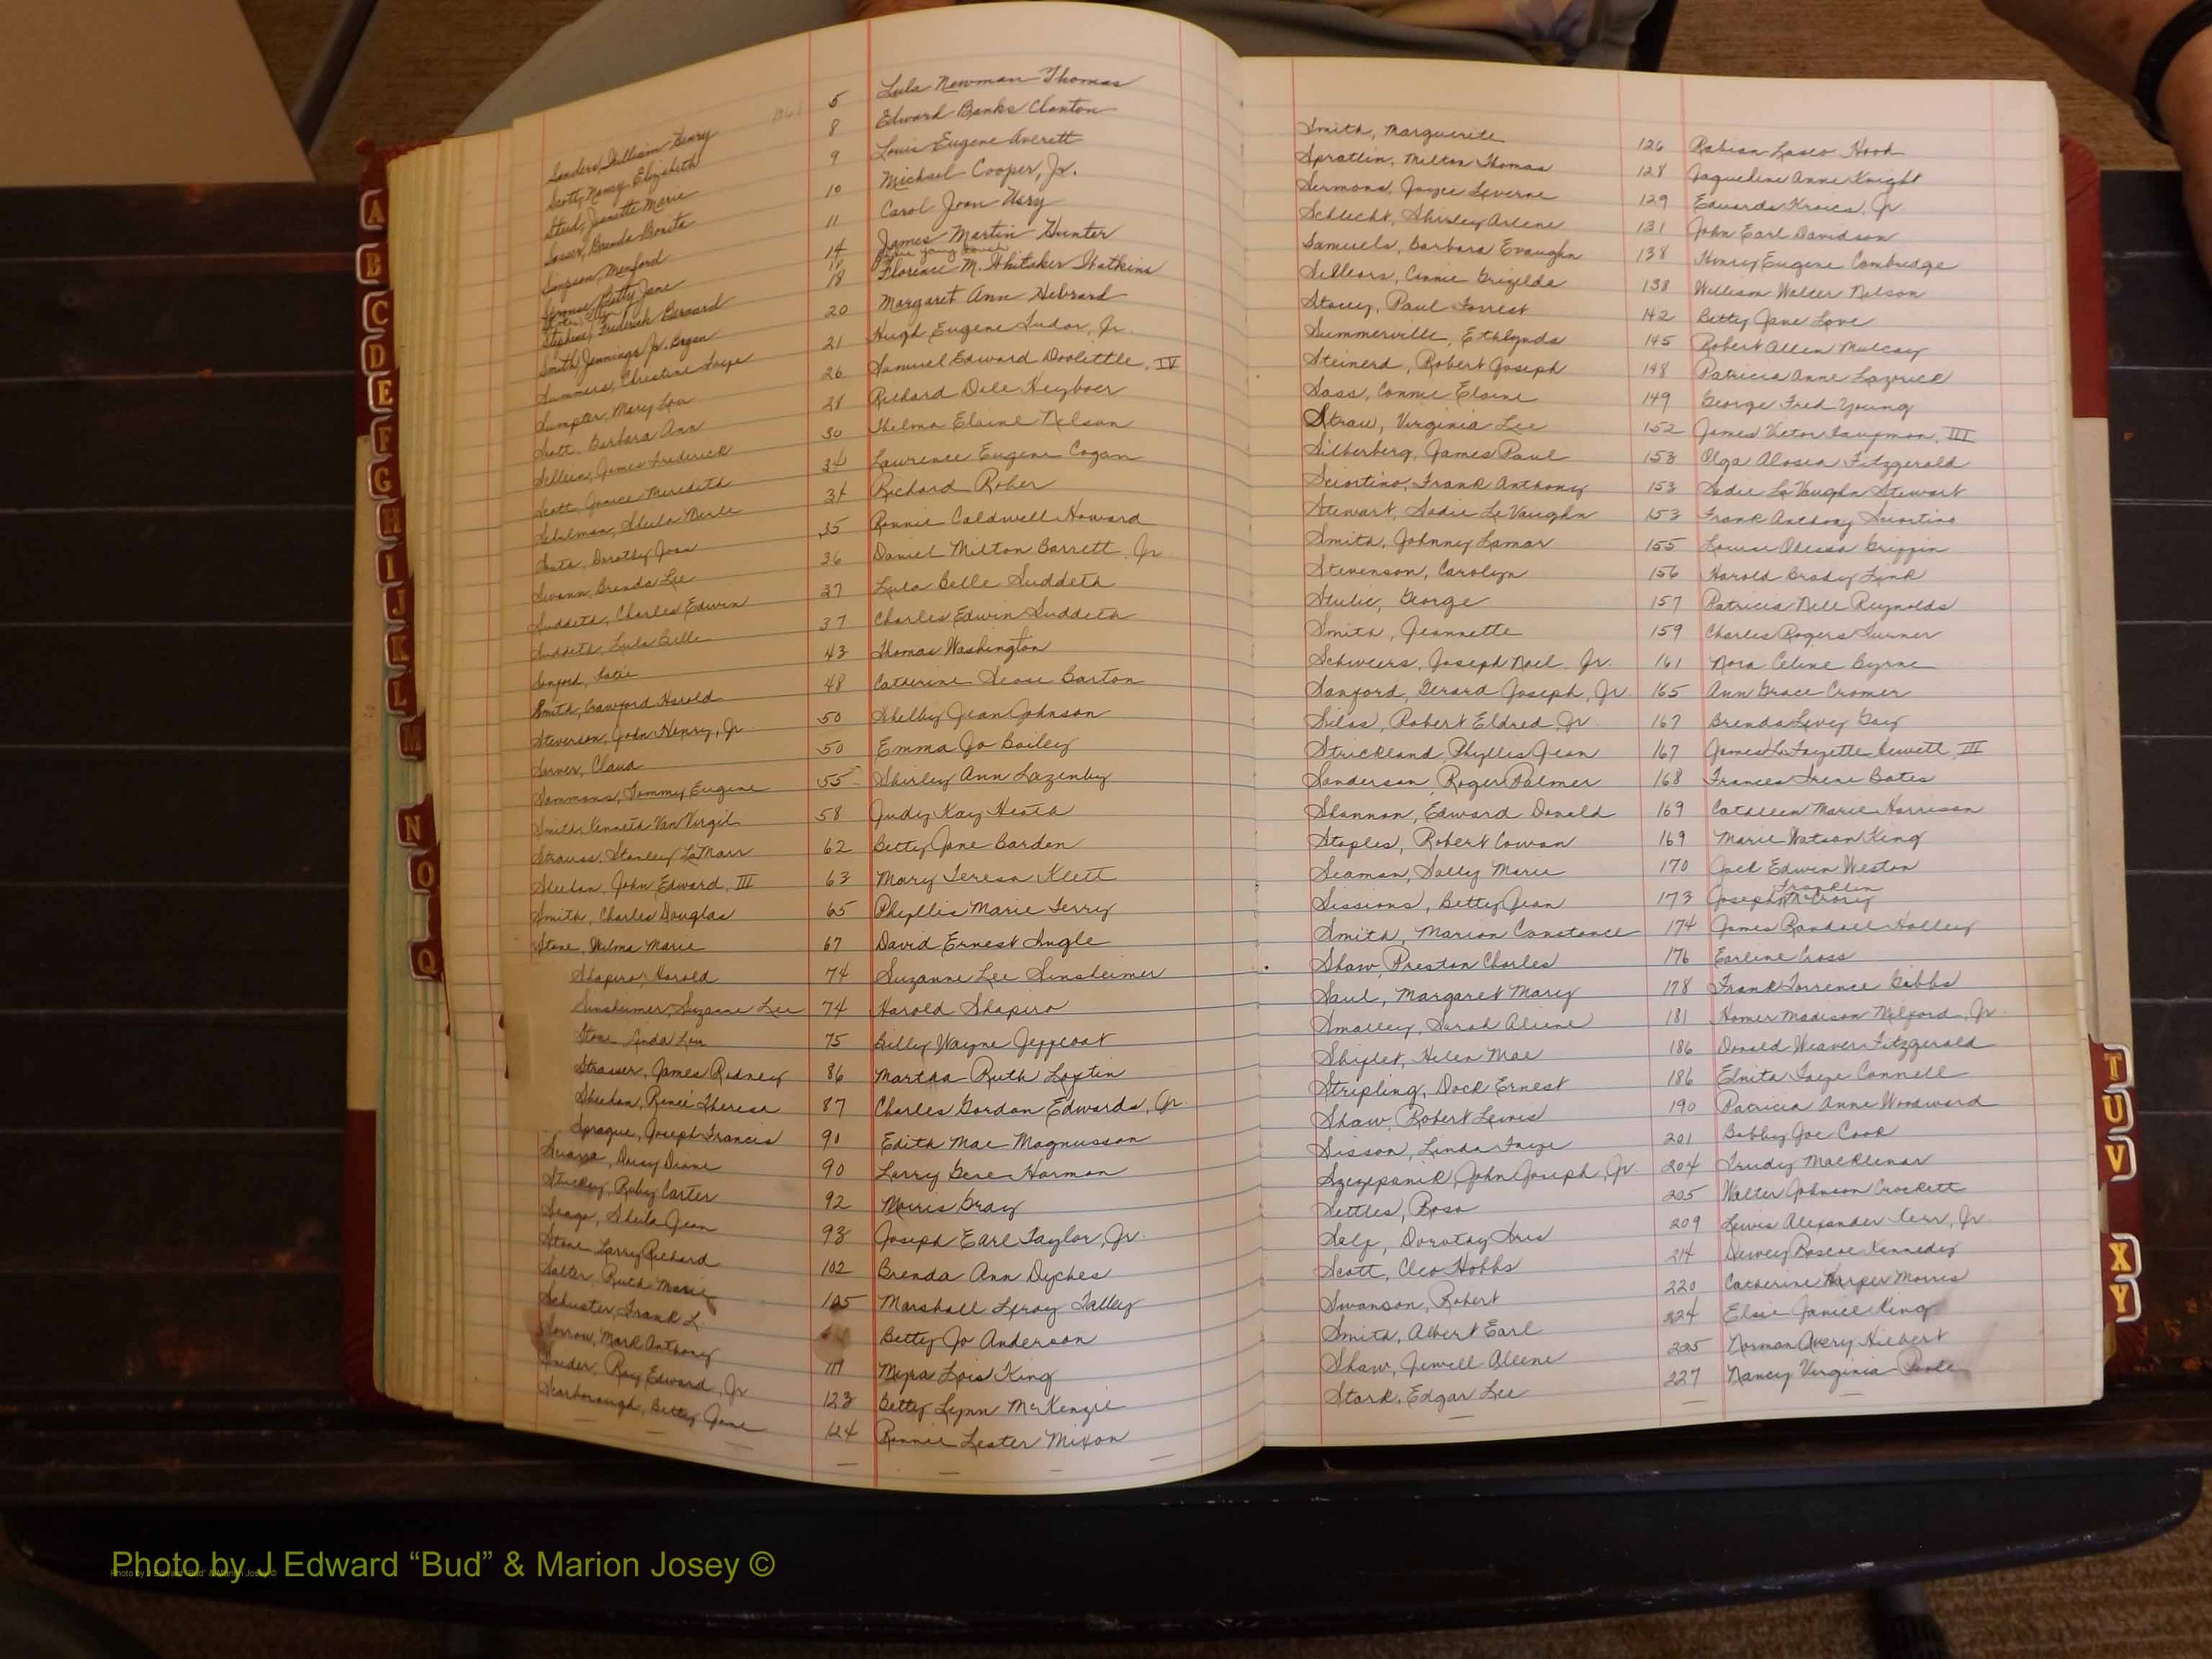 Sanders, William Henry 5 Lula Newman Thomas
Scott, Nancy Elizabeth 8 Edward Banks Clanton
Steed, Jeanette Marie 9 Louis Eugene Averett
Sasser, Brenda Bonita 10 Michael Cooper, Jr.
Simpson, Menford 11 Carol Joan Usry
Sprouse, Betty Jane 14 James Martin Gunter
18
Stephens, Frederick Bernard 18 Florence M. Whitaker Watkins
Smith, Jennings Jr. Bryan 20 Margaret Ann Hibrard
Summers, Christine Faye 21 Hugh Eugene Tudor, Jr.
Sumpter, Mary Lou 26 Samuel Edward Doolittle, IV
Scott, Barbara Ann 28 Richard Dale Heyboer
Selleen, James Frederick 30 Thelma Elaine Nelson
Scott, Janice Meredith 34 Lawrence Eugene Cogan
Schulman, Sheila Merle 34 Richard Rober
Sauta, Dorothy Joan 35 Ronnie Caldwell Howard
Swann, Brenda Lee 36 Daniel Milton Barrett, Jr
Suddeth, Charles Edwin 37 Lula Belle Suddeth
Suddeth, Lula Belle 37 Charles Edwin Suddeth
Sanford, Satie 43 Thomas Washington
Smith, Crawford Harold 48 Catherine Sease Barton
Steverson, John Henry, Jr. 50 Shelby Jean Johnson
Surver, Claud 50 Emma Jo Bailey
Sammons, Tommy Eugene 55 Shirley Ann Lazenby
Smith, Kenneth Van Virgil 58 Judy Kay Heath
Strauss, Stanley LaMarr 62 Betty Jane Barden
Sheehan, John Edward, III 63 Mary Teresa Klett
Smith, Charles Douglas 65 Phyllis Marie Terry
Stone, Wilma Marie 67 David Ernest Ingle
Shapiro, Harold 74 Suzanne Lee Sinsheimer
Sinsheimer, Suzanne Lee 74 Harold Shapiro
Stone, Linda Lou 75 Billy Wayne Jeffcoat
Strasser, James Rodney 86 Martha Ruth Loftin
Sheehan, Reneé Therese 87 Charles Gordon Edwards, Jr.
Sprague, Joseph Francis 90 Edith Mae Magnusson
Daisy Diane 90 Larry Gene Harmon
Stuckey, Ruby Carter 92 Morris Gray
Seago, Sheila Jean 93 Joseph Earl Taylor, Jr.
Stone, Larry Richard 102 Brenda Ann Dyches
Salter, Ruth Marie 105 Marshall Leroy Talley
Schuster, Frank L. Betty Jo Anderson
Mark Anthony 111 Myra Lois King
Snider, Roy Edward, Jr 123 Betty Lynn McKenzie
Scarborough, Betty Jane 124 Ronnie Lester Mixon
Smith, Marguerite 126 Rabian Lasco Hood
Spratlin, Milton Thomas 128 Jaqueline Anne Knight
Sermons, Joyce Leverne 129 Edwards Kroics, Jr.
Schlecht, Shirley Arlene 131 John Earl Davidson
Samuels, Barbara Evaughn 138 Henry Eugene Cambredge
Sellears, Connie Grizelda 138 William Walter Nelson
Stacey, Paul Forrest 142 Betty Jane Love
Summerville, Ethlynda 145 Robert Allen Mulcay
Steinerd, Robert Joseph 148 Patricia Anne Lazorick
Sass, Connie Elaine 149 George Fred Young
Straw, Virginia Lee 152 James Victor Caughman, III
Silberberg, James Paul 153 Olga Alosea Fitzgerald
Sciortino, Frank Anthony 153 Sadie LaVaughn Stewart
Stewart, Sadie LeVaughn 153 Frank Anthony Sciortino
Smith, Johnny Lamar 155 Louise Odessa Griffin
Stevenson, Carolyn 156 Harold Brady Link
Stulic, George 157 Patricia Nell Reynolds
Smith, Jeannette 159 Charles Rogers Turner
Schweers, Joseph Noel, Jr. 161 Nora Celine Byrne
Sanford, Gerard Joseph, Jr 165 Ann Grace Cromer
Silas, Robert Eldred, Jr. 167 Brenda Levey Gay
Strickland, Phyllis Jean 167 James LaFayette Hewett, III
Sanderson, Roger Palmer 168 Frances Irene Bates
Shannon, Edward Donald 169 Cathleen Marie Harrison
Staples, Robert Cowan 169 Marie Watson King
Seaman, Sally Marie 170 Jack Edwin Weston
Sissions, Betty Jean 173 Joseph Franklin McCrory
Smith, Marion Constance 174 James Randall Holley
Shaw, Preston Charles 176 Earline Cross
Saul, Margaret Mary 178 Frank Torrence Gibbs
Smalley, Sarah Aliene 181 Homer Madison Milford, Jr.
Shiflet, Helen Mae 186 Donald Weaver Fitzgerald
Stripling, Dock Ernest 186 Elnita Faye Connell
Shaw, Robert Lewis 190 Patricia Anne Woodward
Sisson, Linda Faye 201 Bobby Joe Cook
Szczepanik, John Joseph, Jr. 204 Trudy Macklenar
Settles, Rosa 205 Walter Johnson Crockett
Self, Dorothy Iris 209 Lewis Alexander Cerr, Jr.
Scott, Cleo Hobbs 214 Dewey Roscoe Kennedy
Swanson, Robert 220 Catherine Harper Morris
Smith, Albert Earl 224 Elsie Janice King
Shaw, Jewell Aleene 225 Norman Avery Hiebert
Stark, Edgar Lee 227 Nancy Virginia Poole
A
B
C
D
E
F
G
H
I
J
K
L
M
N
O
Q
T
U
V
X
Y
Photo by J Edward “Bud” & Marion Josey ©
Photo by J Edward “Bud” & Marion Josey ©